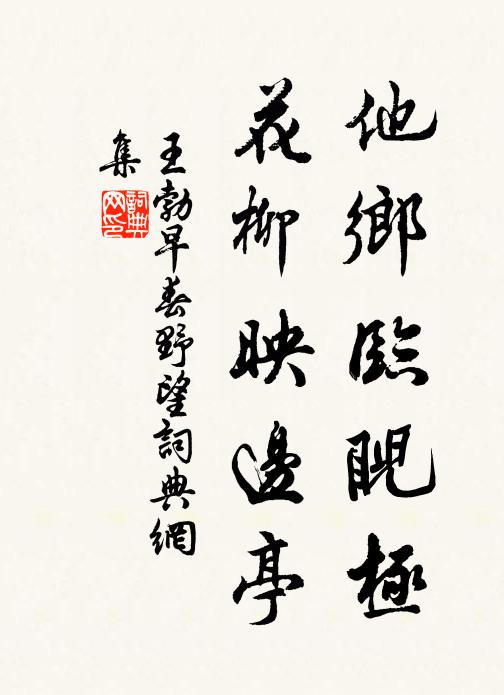 他鄉臨眺極
花柳映邊亭
王勃早春野望詞典網
集
詞典
网印